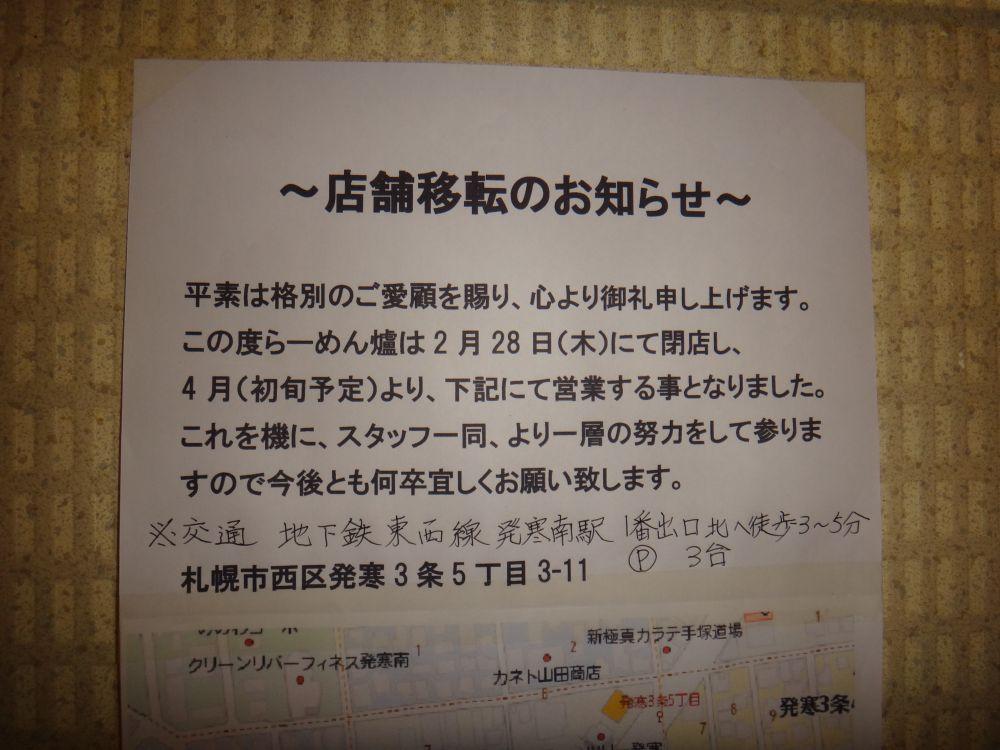 ～店舗移転のお知らせ～
平素は格別のご愛顧を賜り、心より御礼申し上げます。
この度らーめん爐は2月28日(木)にて閉店し、
4月(初旬予定)より、下記にて営業する事となりました。
これを機に、スタッフ一同、より一層の努力をして参りま
すので今後とも何卒宜しくお願い致します。
※交通 地下鉄東西線 発寒南駅 1番出口北へ徒歩3～5分
Ⓟ 3台
札幌市西区発寒3条5丁目3-11
新極真カラテ手塚道場
1
2
1
クリーンリバーフィネス発寒南
カネト山田商店
6
発寒3条5丁目
7
8
9
発寒3条
7
発寒